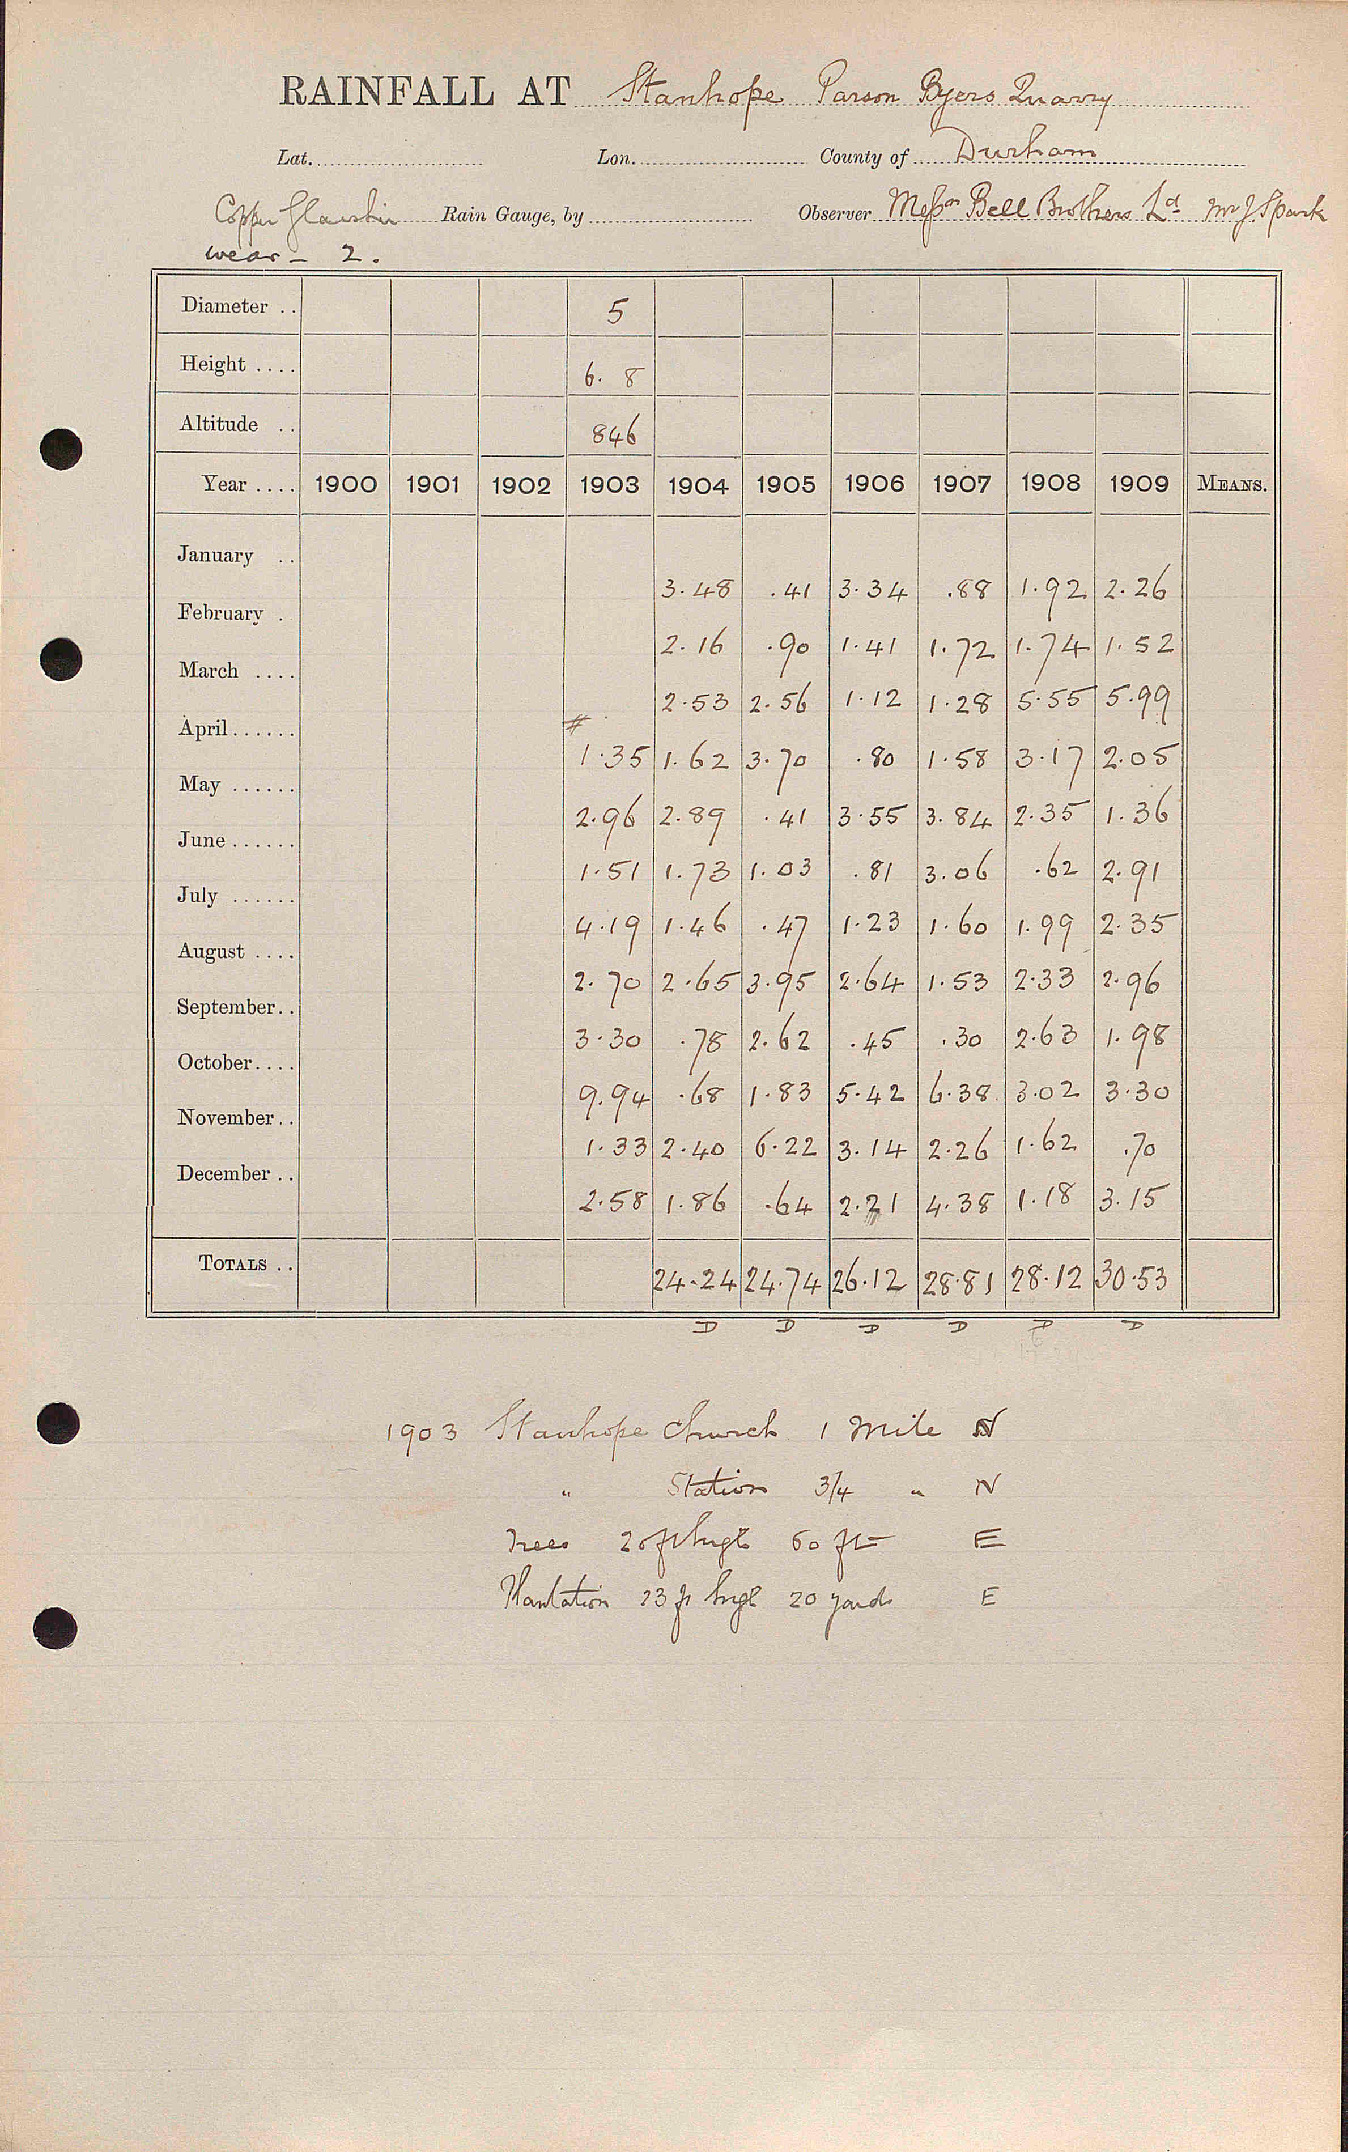 RAINFALL AT Stanhope Parson Byers Quarry
Lat. Lon. County of Durham
Copper Glaisher Rain Gauge, by Observer Messrs Bell Brothers Ld Mr J. Spark
Wear - 2.
Diameter .. 5
Height .... 6. 8
Altitude .. 846
Year .... 1900 1901 1902 1903 1904 1905 1906 1907 1908 1909 MEANS.
January .. 3.48 .41 3.34 .88 1.92 2.26
February . 2.16 .90 1.41 1.72 1.74 1.52
March .... 2.53 2.56 1.12 1.28 5.55 5.99
April...... # 1.35 1.62 3.70 .80 1.58 3.17 2.05
May ...... 2.96 2.89 .41 3.55 3.84 2.35 1.36
June...... 1.51 1.73 1.03 .81 3.06 .62 2.91
July ...... 4.19 1.46 .47 1.23 1.60 1.99 2.35
August .... 2.70 2.65 3.95 2.64 1.53 2.33 2.96
September.. 3.30 .78 2.62 .45 .30 2.63 1.98
October.... 9.94 .68 1.83 5.42 6.38 3.02 3.30
November.. 1.33 2.40 6.22 3.14 2.26 1.62 .70
December .. 2.58 1.86 .64 2.21 4.38 1.18 3.15
TOTALS .. 24.24 24.74 26.12 28.81 28.12 30.53
D D D D D D
1903 Stanhope Church 1 Mile N
" Station 3/4 " N
Trees 20 ft high 60 ft E
Plantation 23 ft high 20 yards E